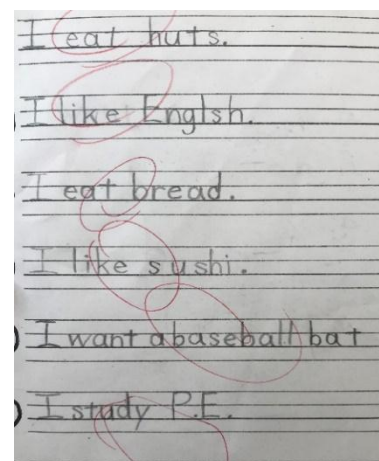 I eat huts.
I like Englsh.
I eat bread.
I like sushi.
I want a baseball bat
I study P.E.